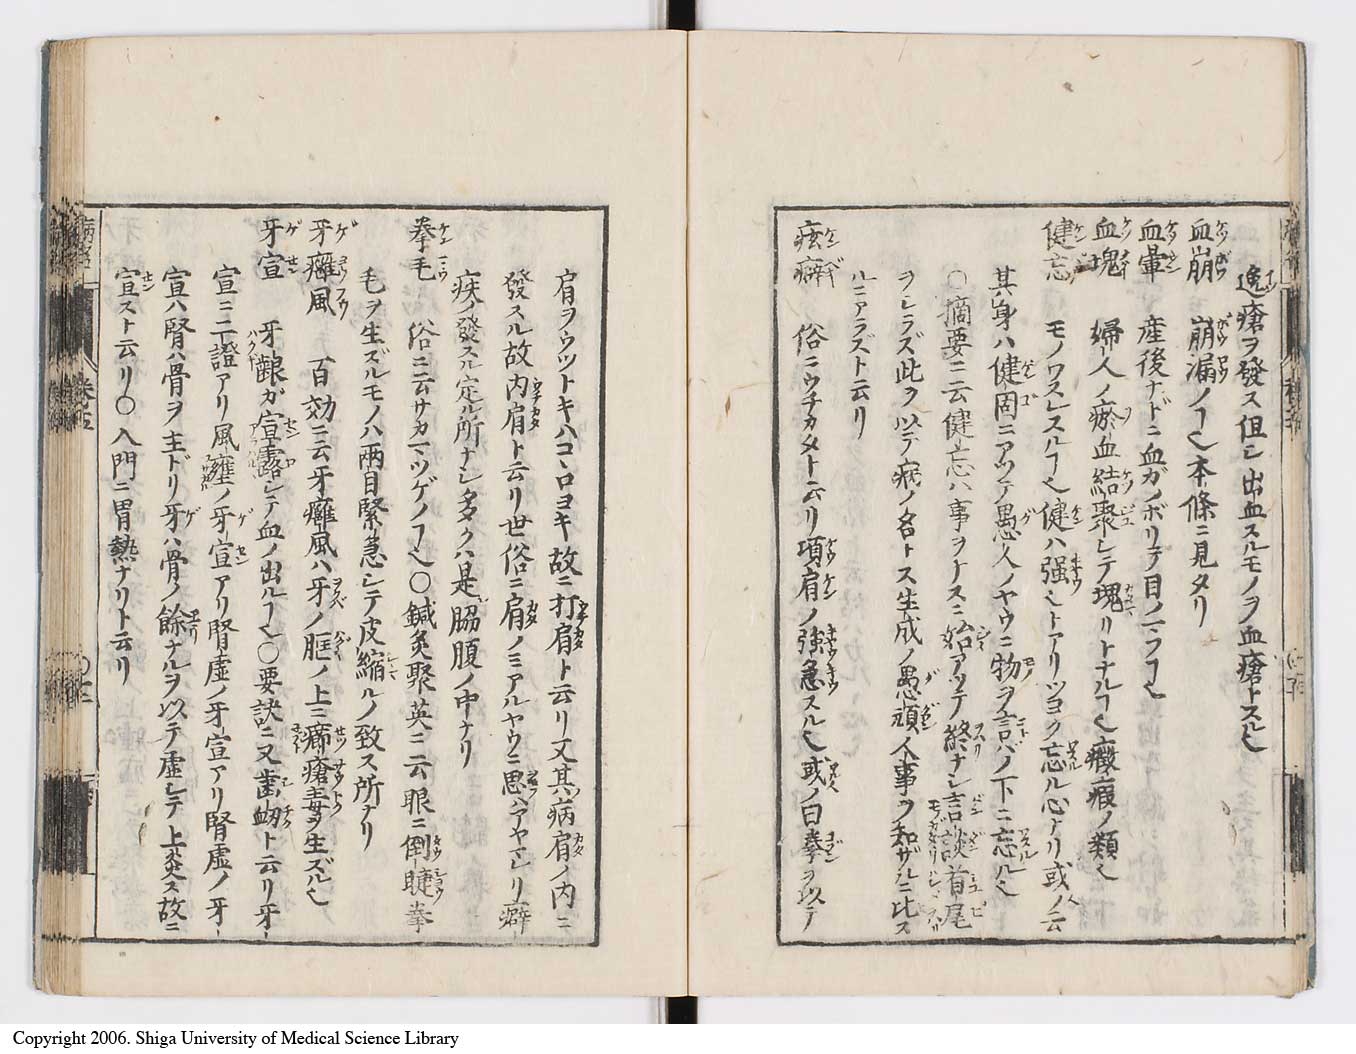 逸瘡ヲ發ス但シ出血スルモノヲ血瘡トスル也
血崩 崩漏ノヿ也本條ニ見タリ
血暈 産後ナドニ血ガノボリテ目ノマフヿ也
血塊 婦人ノ瘀血結聚シテ塊リトナルヿ也癥瘕ノ類也
健忘 モノワスレスルヿ也健ハ强也トアリツヨク忘ル心ナリ或人ノ云
其身ハ健固ニアツテ愚人ノヤウニ物ヲ言バノ下ニ忘ル也
○摘要ニ云健忘ハ事ヲナスニ始アツテ終ナシ言談首尾
ヲシラズ此ヲ以テ病ノ名トス生成ノ愚頑人事ヲ知ザルニ比ス
ルニアラズト云リ
痃癖 俗ニウチカタト云リ項肩ノ強急スル也或人ノ曰拳ヲ以テ
肩ヲウツトキハコヽロヨキ故ニ打肩ト云リ又其病肩ノ内ニ
發スル故内肩ト云リ世俗ニ肩ノミアルヤウニ思ハアヤマレリ癖
疾ノ發スル定ル所ナシ多クハ是脇腹ノ中ナリ
拳毛 俗ニ云サカマツゲノヿ也○鍼灸聚英ニ云眼ニ倒睫拳
毛ヲ生ズルモノハ兩目緊急シテ皮縮ルノ致ス所ナリ
牙癰風 百効ニ云牙癰風ハ牙ノ框ノ上ニ癤瘡毒ヲ生ズル也
牙宣 牙齦ガ宣露シテ血ノ出ルヿ也○要訣ニ又齒衂ト云リ牙
宣ニ二證アリ風壅ノ牙宣アリ腎虛ノ牙宣アリ腎虛ノ牙
宣ハ腎ハ骨ヲ主ドリ牙ハ骨ノ餘ナルヲ以テ虛シテ上炎ス故ニ
宣スト云リ○入門ニ胃熱ナリト云リ
Copyright 2006. Shiga University of Medical Science Library